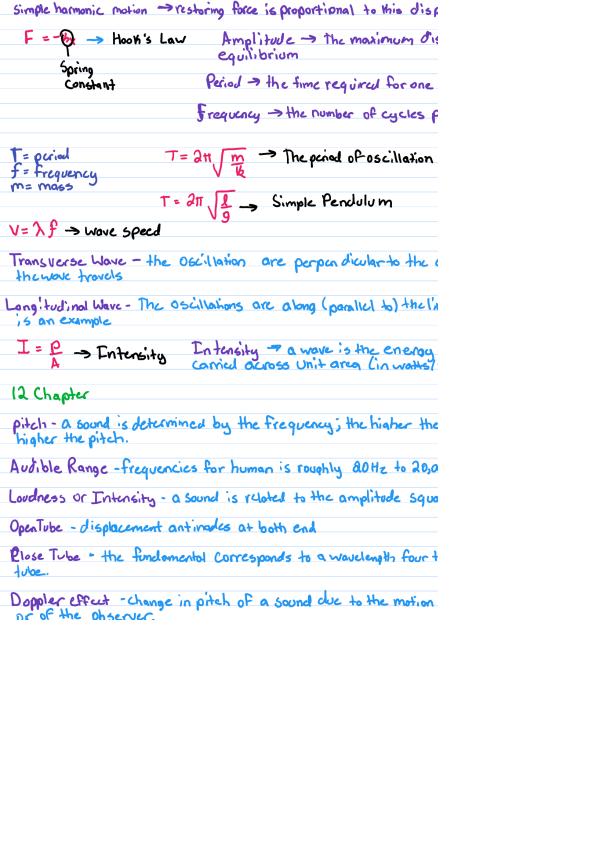 Simple harmonic motion → restoring force is proportional to this disp
F = -kx → Hook's Law
Spring
Constant
Amplitude → The maximum dis
equilibrium
Period → the time required for one
Frequency → the number of cycles p
T = period
f = frequency
m = mass
T = 2π√(m/k) → The period of oscillation
T = 2π√(l/g) → Simple Pendulum
V = λf → wave speed
Transverse Wave – the oscillation are perpendicular to the d
the wave travels
Longitudinal Wave - The oscillations are along (parallel to) the li
is an example
I = P/A → Intensity
Intensity → a wave is the energy
carried across unit area (in watts/
12 Chapter
pitch - a sound is determined by the frequency; the higher the
higher the pitch.
Audible Range - frequencies for human is roughly 20Hz to 20,0
Loudness or Intensity - a sound is related to the amplitude squa
Open Tube - displacement antinodes at both end
Close Tube - the fundamental corresponds to a wavelength four t
tube.
Doppler effect - change in pitch of a sound due to the motion
or of the observer.